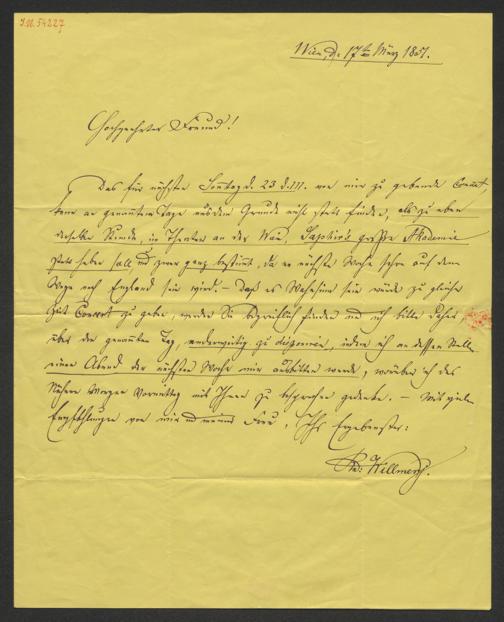 I.N. 54227
Wien, d. 17ten März 1851.
Hochgeehrter Freund!
Das für nächsten Sonntag d. 23 d. M. von mir zu gebende Concert,
kann an genanntem Tage aus dem Grunde nicht statt finden, als zu eben
derselben Stunde, im Theater an der Wien, Saphir's große Akademie
statt haben soll und zwar ganz bestimmt, da er nächste Woche schon auf dem
Wege nach England sein wird. – Daß es Wahnsinn sein würde zu gleicher
Zeit Concert zu geben, werden Sie begreiflich finden und ich bitte daher,
über den genannten Tag, anderweitig zu disponiren, indem ich an dessen Stelle
einen Abend der nächsten Woche mir ausbitten werde, worüber ich das
Nähere Morgen Vormittag mit Ihnen zu besprechen gedenke. – Mit vielen
Empfehlungen von mir und meiner Frau, Ihr Ergebenster:
Rud: Willmers.